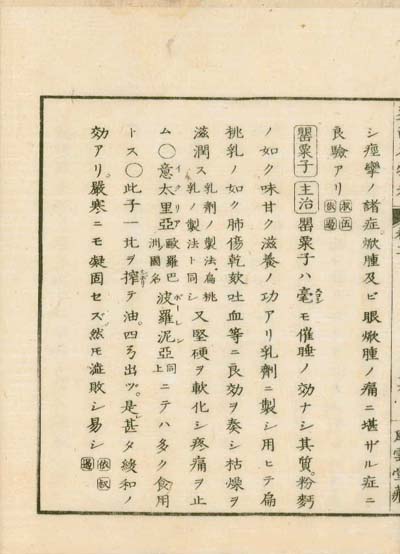 シ痙攣ノ諸症。焮腫及ビ眼焮腫ノ痛ニ堪ザル症ニ
良驗アリ
罌粟子 主治 罌粟子ハ毫モ催睡ノ効ナシ其質。粉麪
ノ如ク味甘ク滋養ノ功アリ乳劑ニ製シ用ヒテ扁
桃乳ノ如ク肺傷乾欬吐血等ニ良効ヲ奏シ枯燥ヲ
滋潤ス 乳劑ノ製法扁桃乳ノ製法ト同シ 又堅硬ヲ軟化シ疼痛ヲ止
ム〇意太里亞 イタリア 歐羅巴洲國名 波羅泥亞 ポーレン 同上 ニテハ多ク食用
トス〇此子一℔ヲ搾テ油。四ヲ出ヅ。是レ甚タ緩和ノ
効アリ。嚴寒ニモ凝固セズ然𪜈澁敗シ易シ